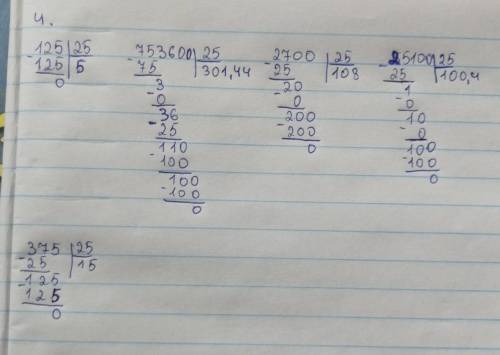 4.
-125 | 25
125 | 5
0
-753600 | 25
75 | 301,44
3
-0
-36
25
110
-100
100
-100
0
-2700 | 25
25 | 108
-20
0
-200
200
0
-25100 | 25
25 | 100,4
1
-0
10
-0
100
-100
0
-375 | 25
25 | 15
-125
125
0